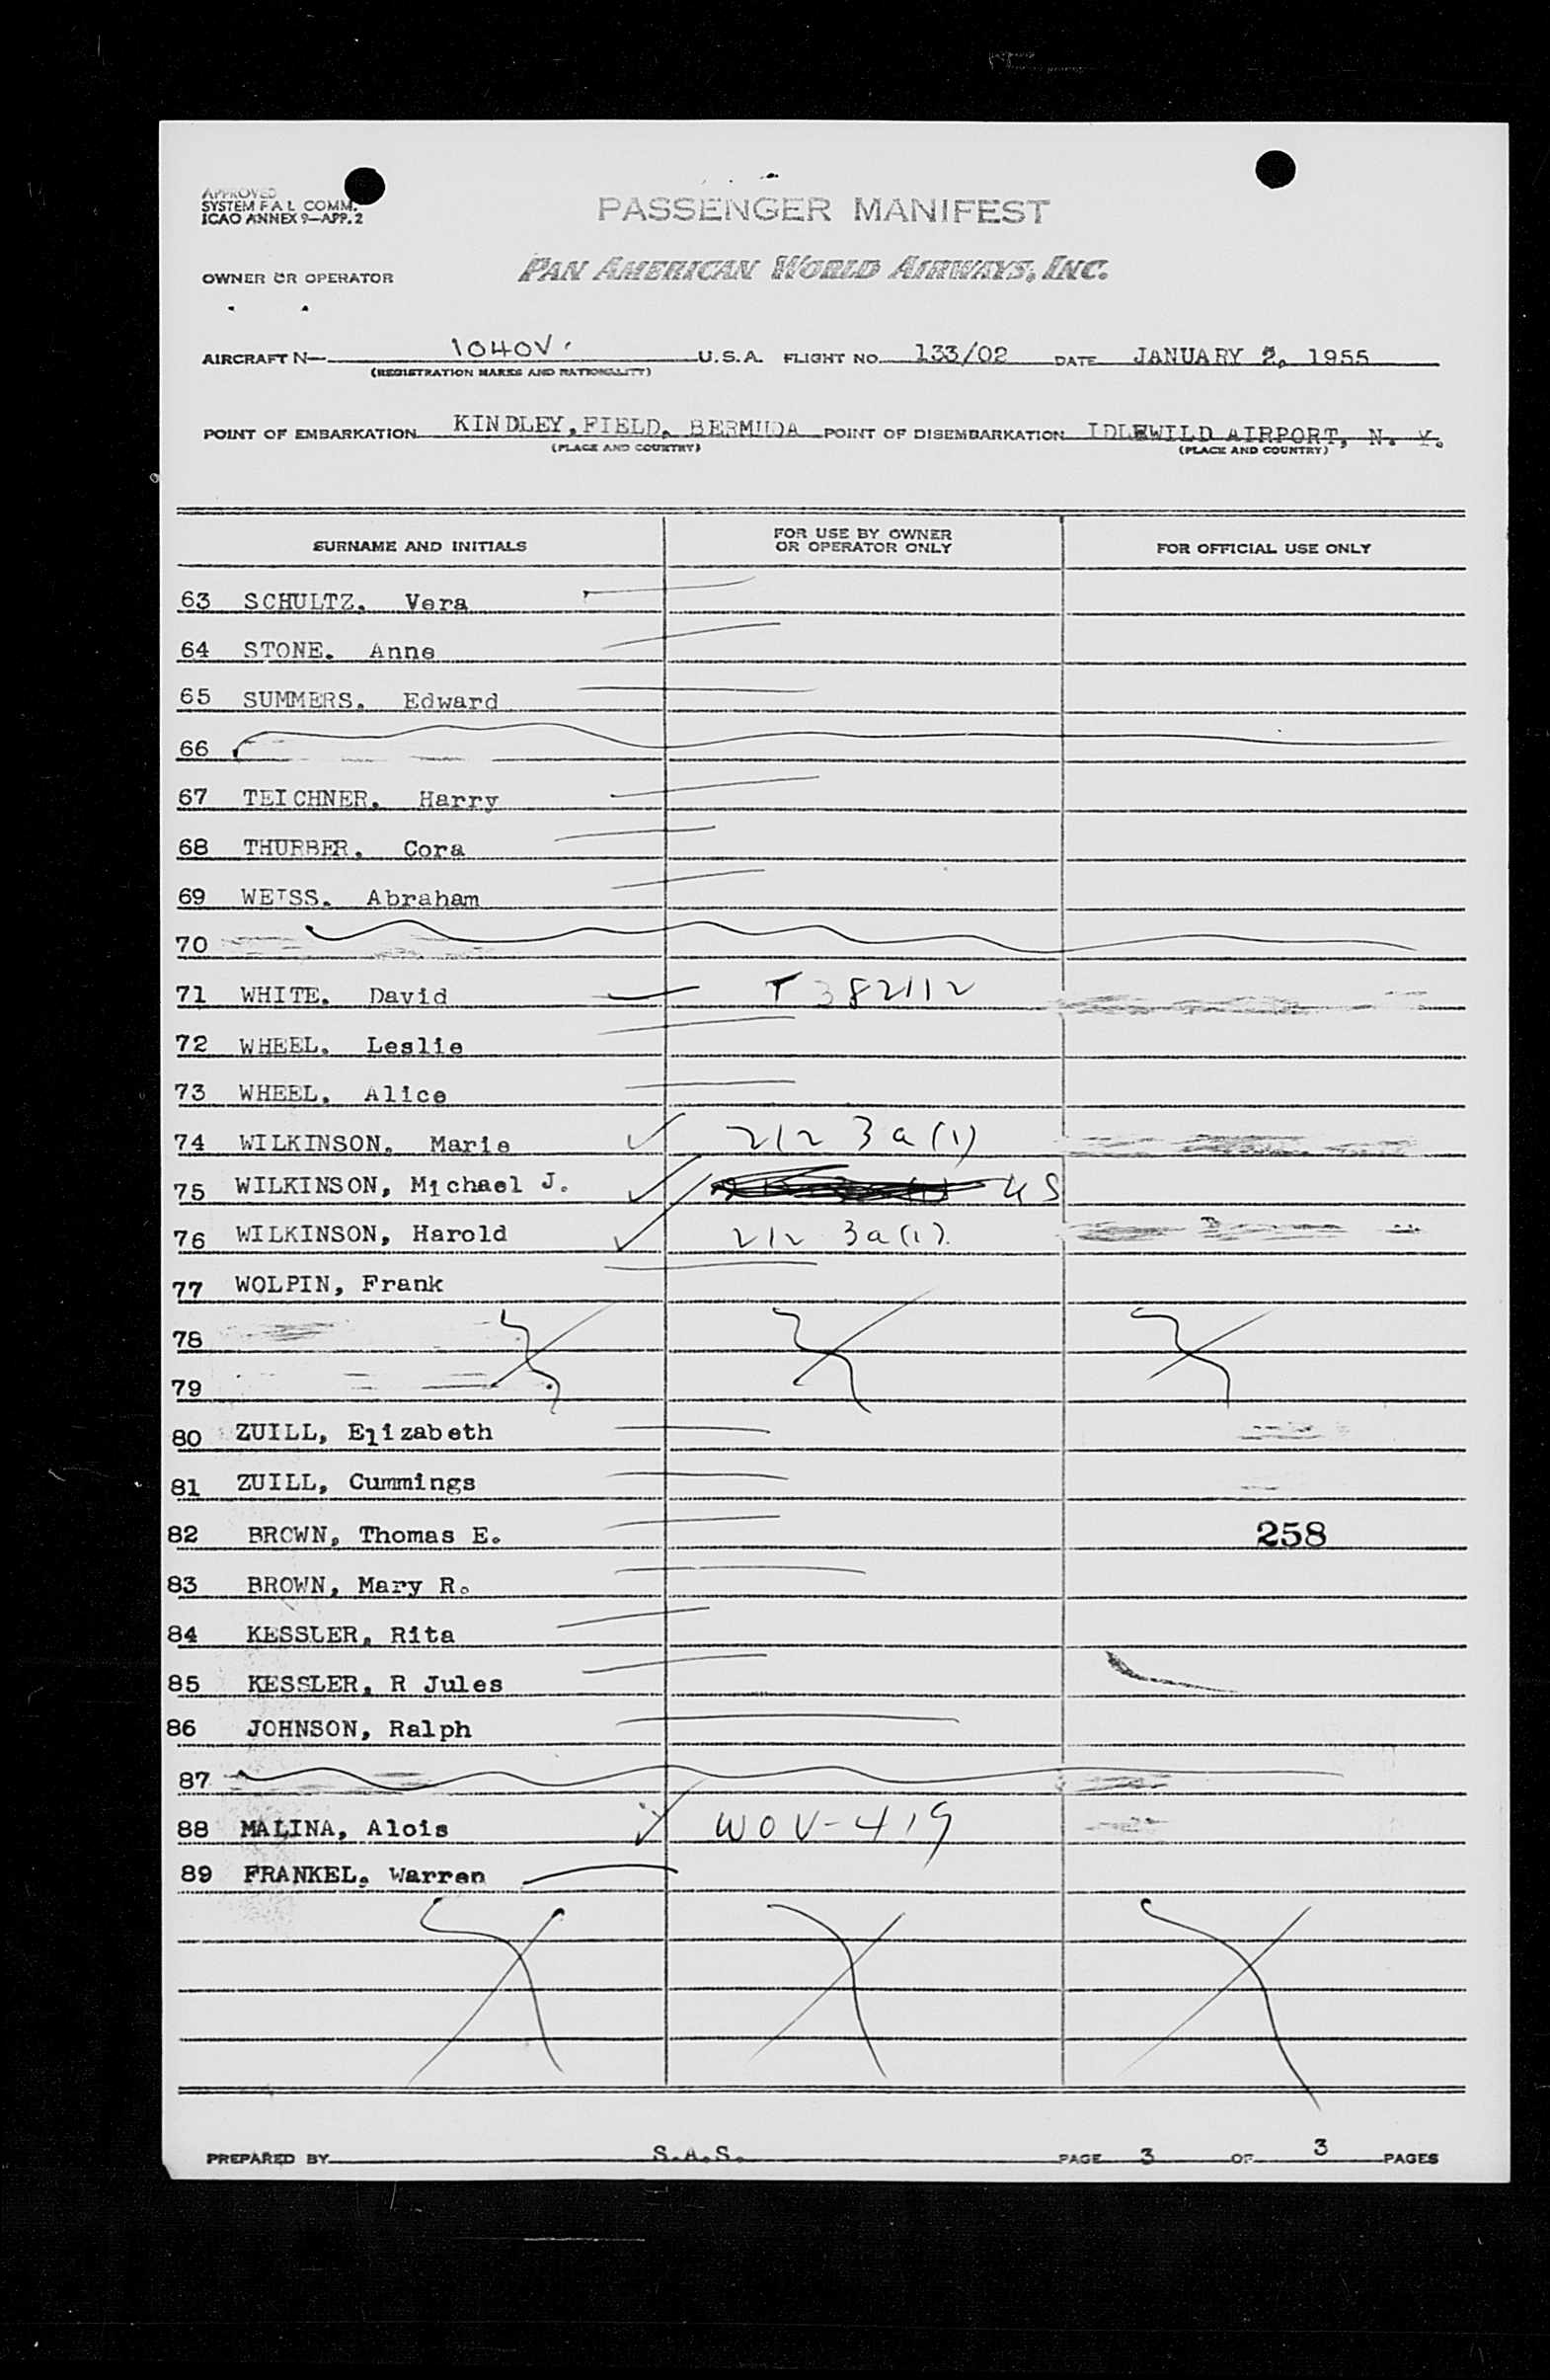 APPROVED
SYSTEM F A L COMM.
ICAO ANNEX 9—APP. 2
PASSENGER MANIFEST
OWNER OR OPERATOR
PAN AMERICAN WORLD AIRWAYS, INC.
AIRCRAFT N— 1040V U.S.A. FLIGHT NO. 133/02 DATE JANUARY 2, 1955
(REGISTRATION MARKS AND NATIONALITY)
POINT OF EMBARKATION KINDLEY, FIELD, BERMUDA POINT OF DISEMBARKATION IDLEWILD AIRPORT, N. Y.
(PLACE AND COUNTRY) (PLACE AND COUNTRY)
SURNAME AND INITIALS FOR USE BY OWNER OR OPERATOR ONLY FOR OFFICIAL USE ONLY
63 SCHULTZ, Vera
64 STONE, Anne
65 SUMMERS, Edward
66
67 TEICHNER, Harry
68 THURBER, Cora
69 WEISS, Abraham
70
71 WHITE, David T 382112
72 WHEEL, Leslie
73 WHEEL, Alice
74 WILKINSON, Marie 212 3a(1)
75 WILKINSON, Michael J. US
76 WILKINSON, Harold 212 3a(1)
77 WOLPIN, Frank
78
79
80 ZUILL, Elizabeth
81 ZUILL, Cummings
82 BROWN, Thomas E. 258
83 BROWN, Mary R.
84 KESSLER, Rita
85 KESSLER, R Jules
86 JOHNSON, Ralph
87
88 MALINA, Alois WOV-419
89 FRANKEL, Warren
PREPARED BY S.A.S. PAGE 3 OF 3 PAGES